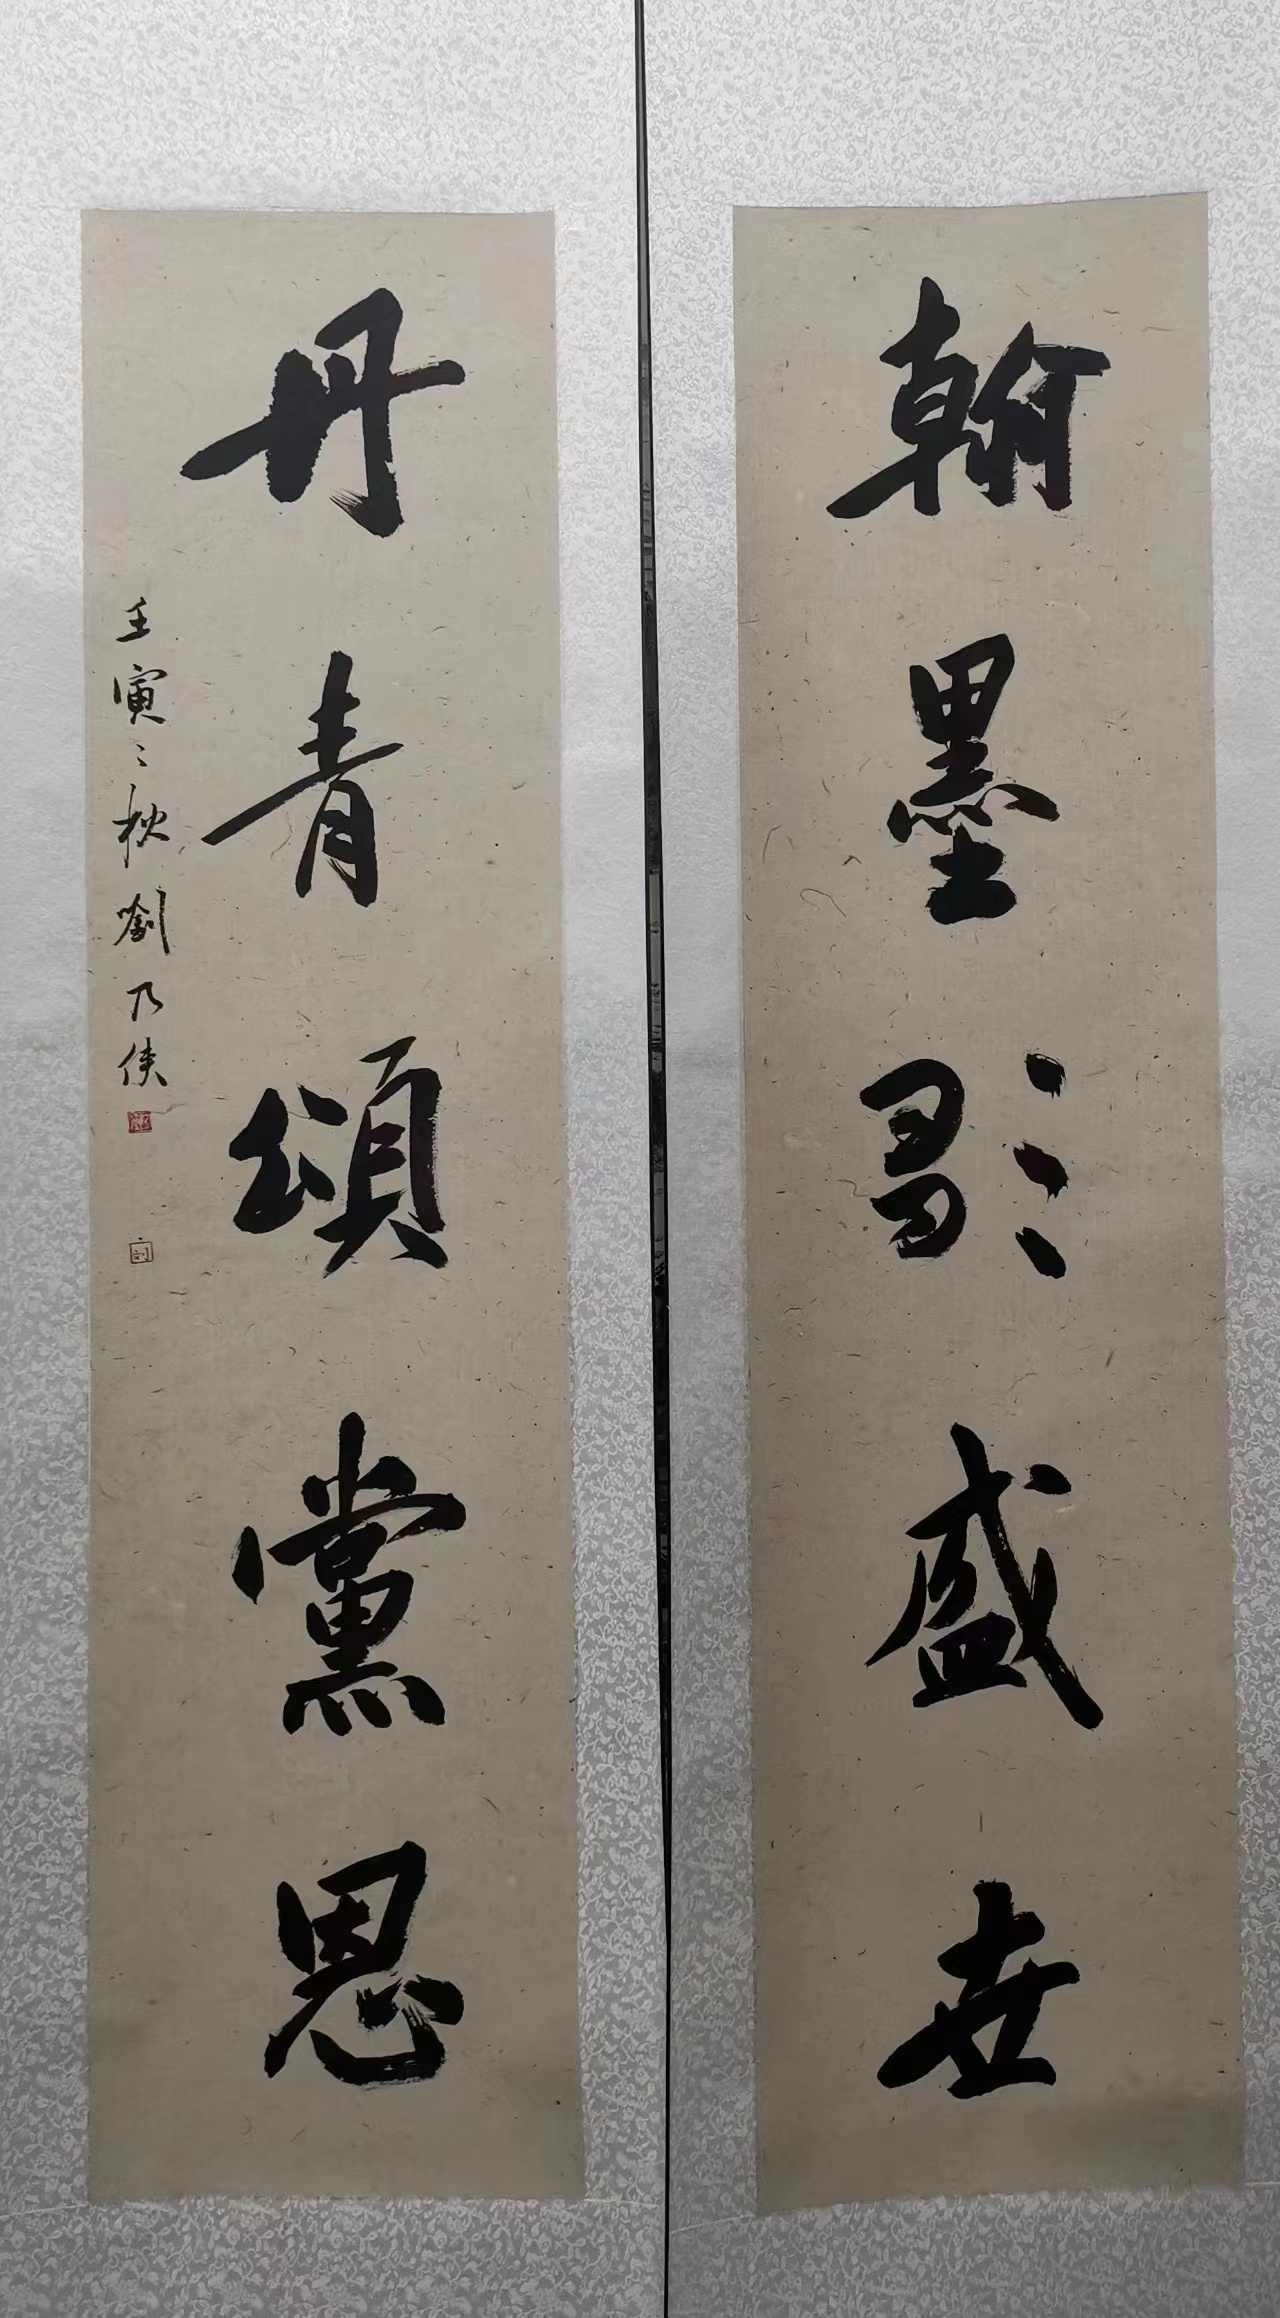 翰墨歌盛世
丹青頌黨恩
壬寅之秋劉乃俠